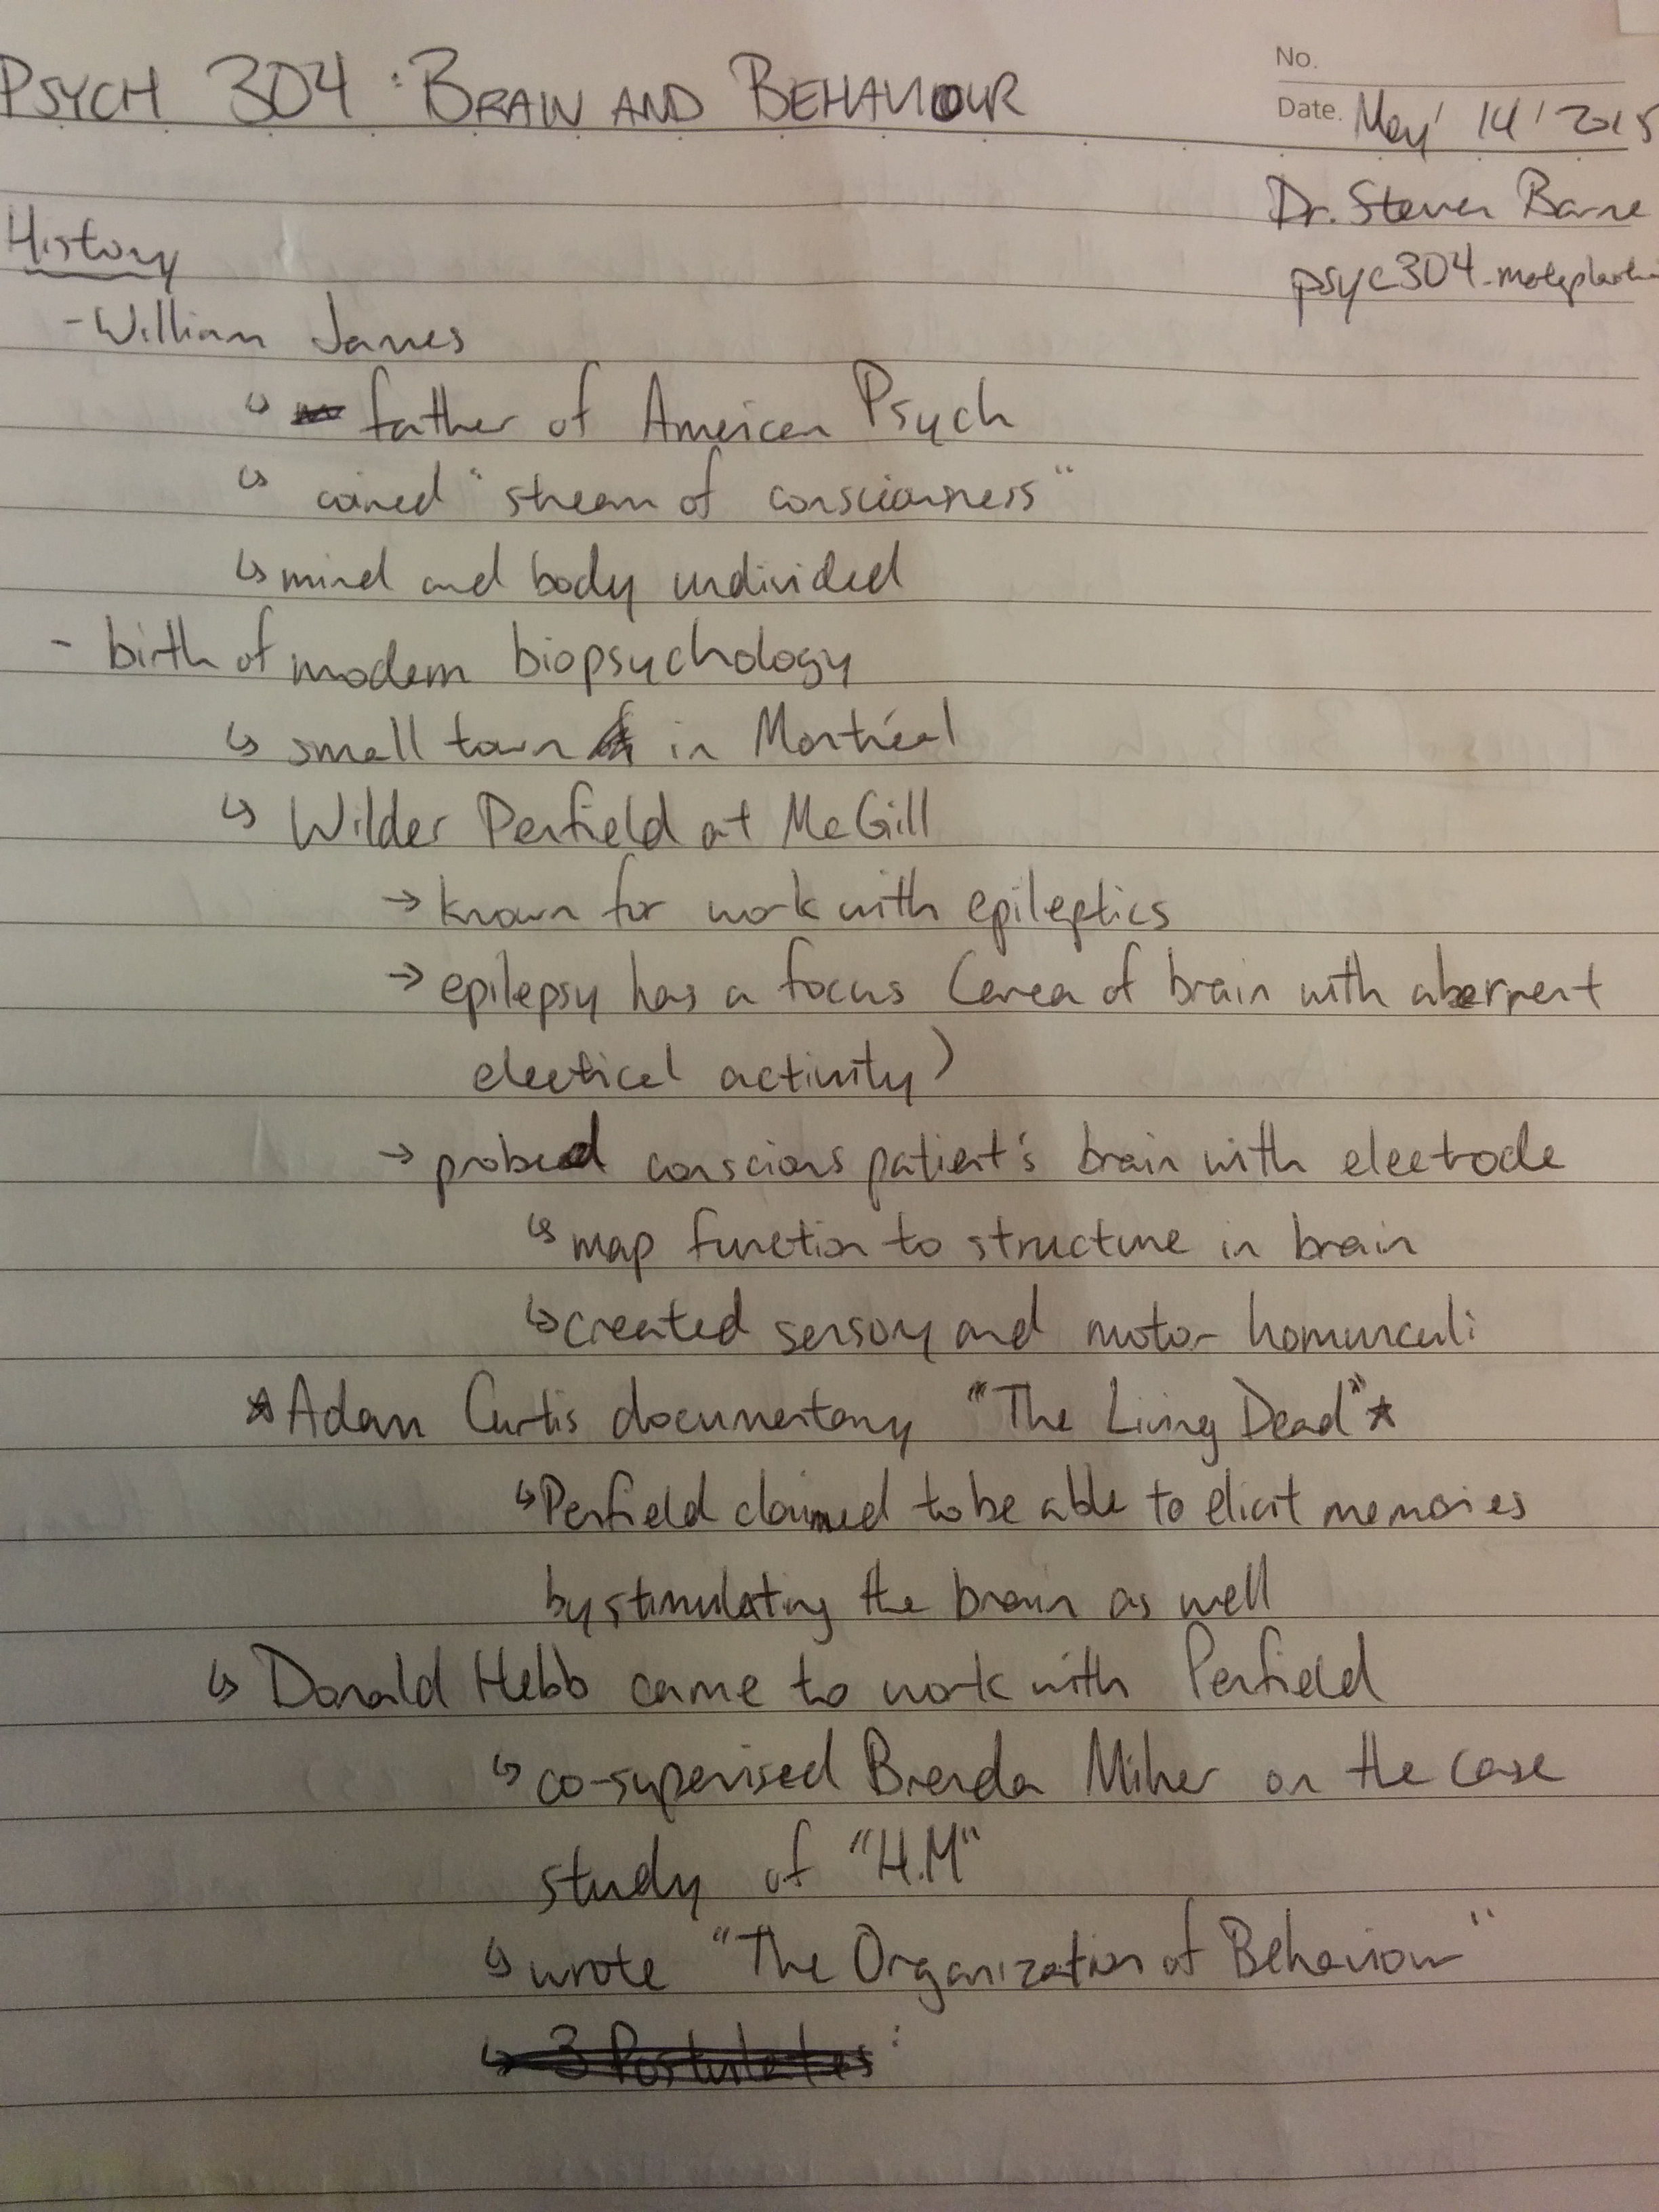 No.
PSYCH 304 : BRAIN AND BEHAVIOUR
Date. May 14 / 2015
Dr. Steven Barne
History
psyc304.metaplasti
- William James
↳ father of American Psych
↳ coined "stream of consciousness"
↳ mind and body undivided
- birth of modern biopsychology
↳ small town in Montréal
↳ Wilder Penfield at McGill
→ known for work with epileptics
→ epilepsy has a focus (area of brain with aberrent
electical activity)
→ probed conscious patient's brain with electrode
↳ map function to structure in brain
↳ created sensory and motor homunculi
☆ Adam Curtis documentary "The Living Dead" ☆
↳ Penfield claimed to be able to elicit memories
by stimulating the brain as well
↳ Donald Hebb came to work with Penfield
↳ co-supervised Brenda Milner on the case
study of "H.M"
↳ wrote "The Organization of Behaviour"
↳ 3 Postulates :